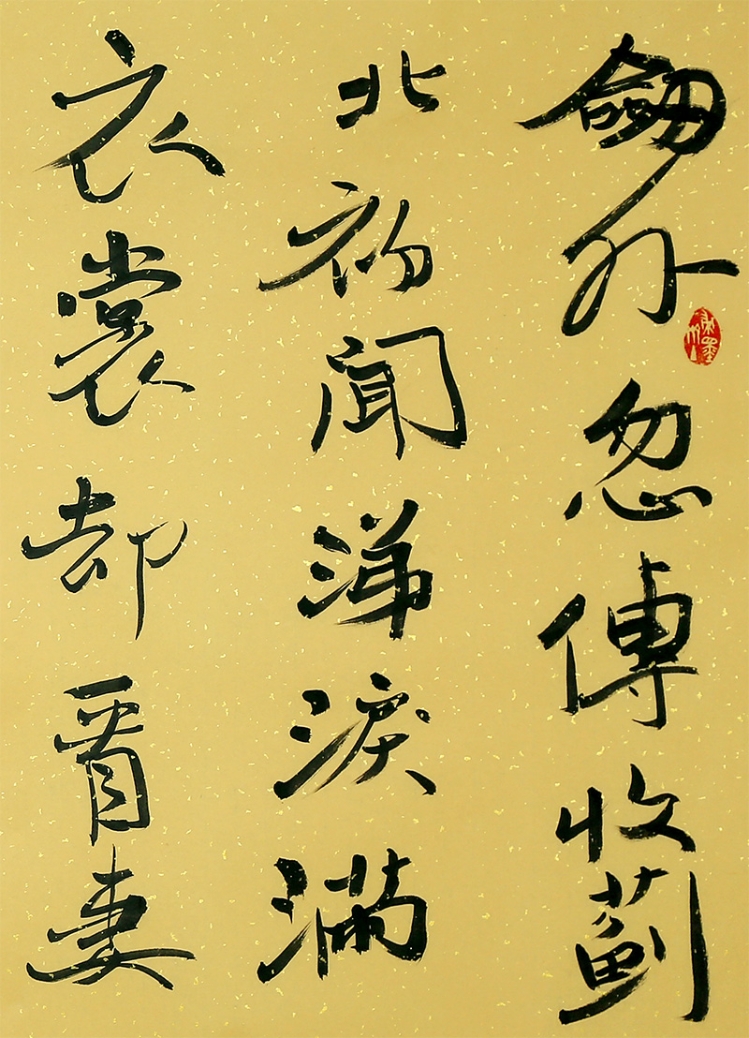 劔外忽傳收薊
北初聞涕淚滿
衣裳却看妻